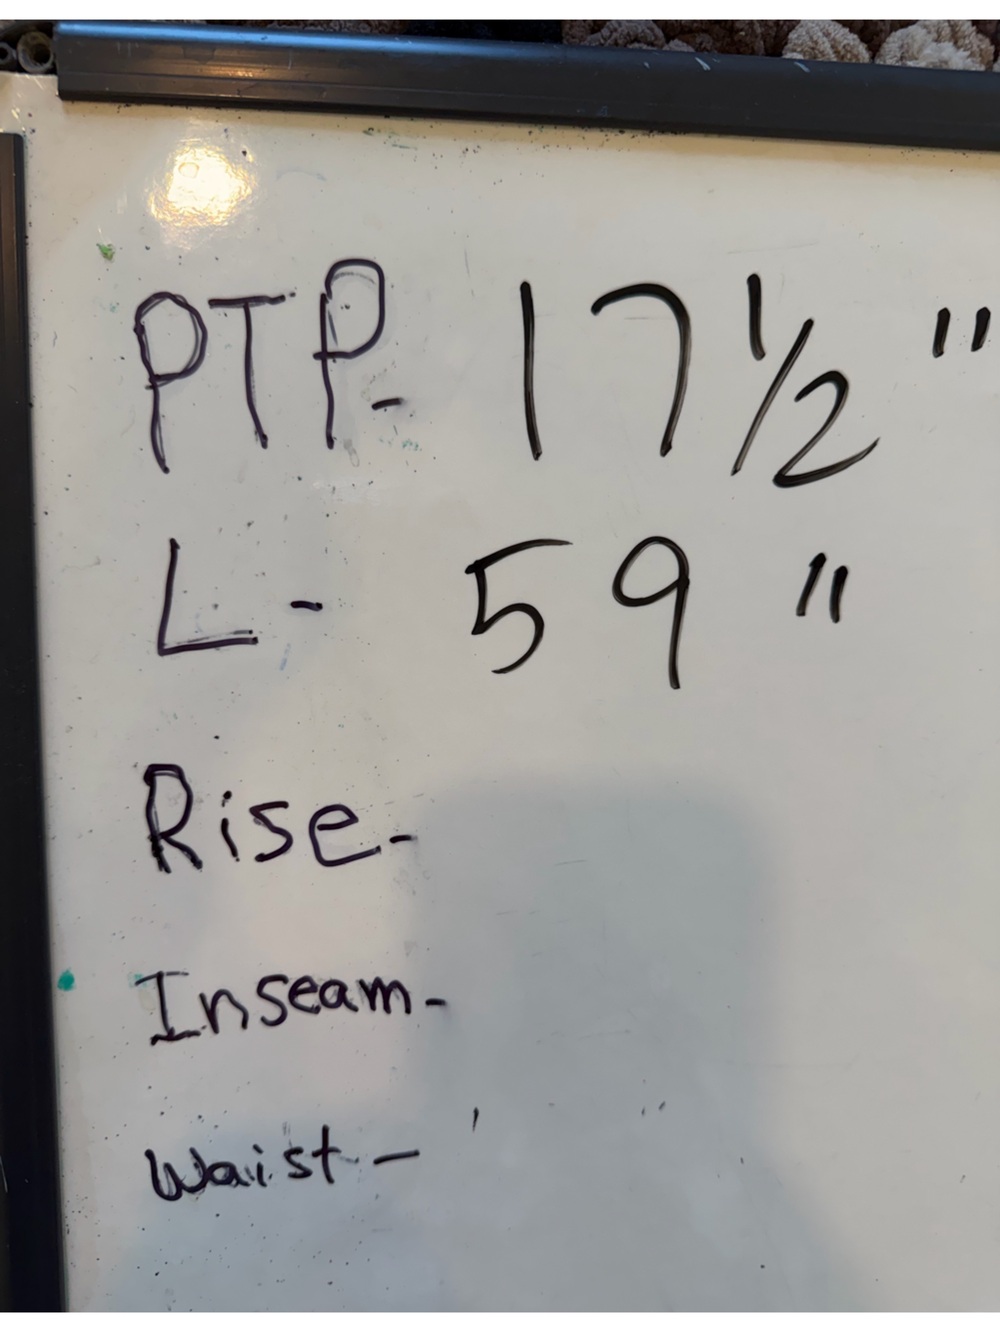 PTP- 17 1/2 "
L- 59 "
Rise-
Inseam-
Waist-